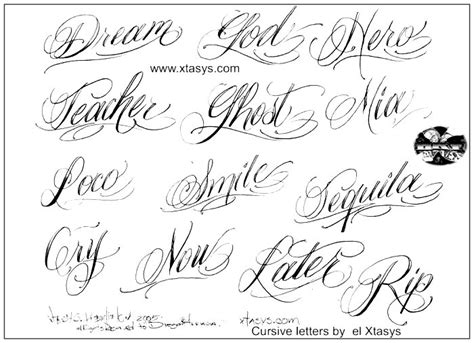 Dream God Hero
www.xtasys.com
Teacher Ghost Mia
Loco Smile Tequila
Cry Now Later Rip
xtasys.com
Cursive letters by el Xtasys